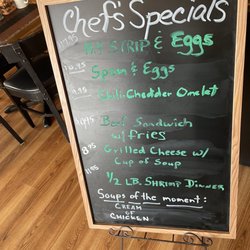 Chef's Specials
NY STRIP & Eggs
Spam & Eggs
Chili-Cheddar Omelet
Beef Sandwich
w/fries
Grilled Cheese w/
Cup of Soup
1/2 LB. Shrimp Dinner
Soups of the moment:
CREAM
OF
CHICKEN